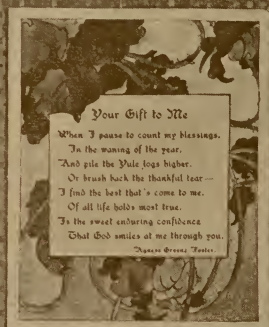 Your Gift to Me
When I pause to count my blessings,
In the waning of the year,
And pile the Yule logs higher,
Or brush back the thankful tear—
I find the best that's come to me,
Of all life holds most true,
Is the sweet enduring confidence
That God smiles at me through you.
Agness Greene Foster.